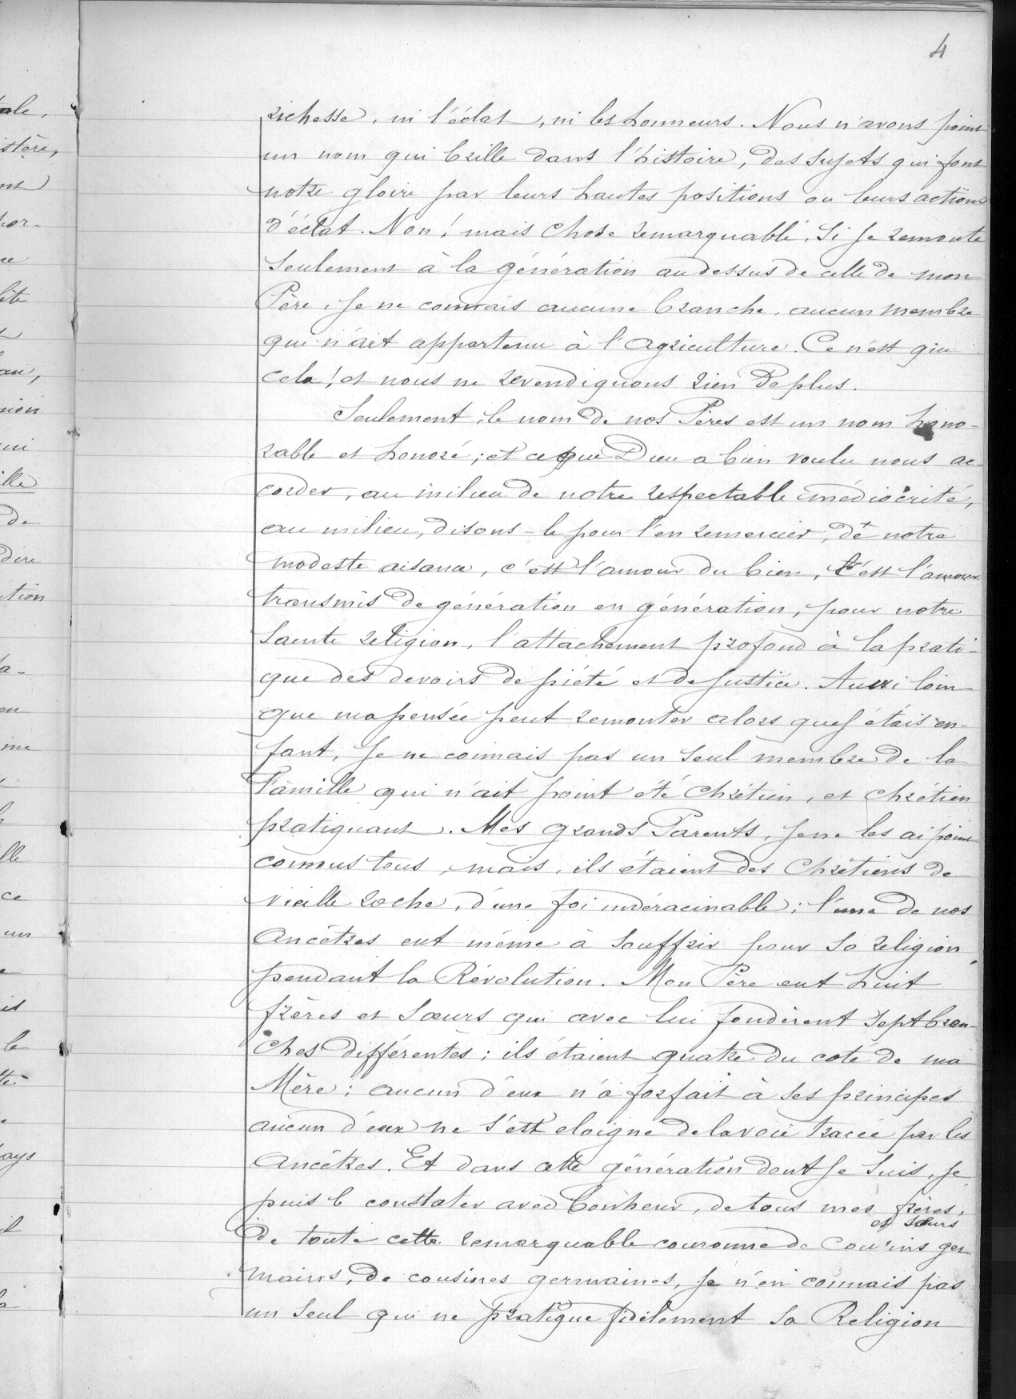 4
richesse, ni l'éclat, ni les honneurs. Nous n'avons point
un nom qui brille dans l'histoire, des sujets qui font
notre gloire par leurs hautes positions ou leurs actions
d'éclat. Non! mais chose remarquable, si je remonte
seulement à la génération au dessus de celle de mon
Père, je ne connais aucune branche, aucun membre
qui n'ait appartenu à l'agriculture. Ce n'est que
cela! et nous ne revendiquons rien de plus.
Seulement, le nom de nos Pères est un nom hono-
rable et honoré; et ce que Dieu a bien voulu nous ac-
corder, au milieu de notre respectable médiocrité,
au milieu, disons-le pour l'en remercier, de notre
modeste aisance, c'est l'amour du bien, c'est l'amour
transmis de génération en génération, pour notre
Sainte religion, l'attachement profond à la prati-
que des devoirs de piété et de justice. Aussi loin
que ma pensée peut remonter alors que j'étais en-
fant, je ne connais pas un seul membre de la
Famille qui n'ait point été Chrétien, et chrétien
pratiquant. Mes grands Parents, je ne les ai point
connus tous, mais, ils étaient des Chrétiens de
vieille roche, d'une foi indéracinable; l'une de nos
Ancêtres eut même à souffrir pour sa religion,
pendant la Révolution. Mon Père eut huit
frères et sœurs qui avec lui fondèrent sept bran-
ches différentes; ils étaient quatre du coté de ma
Mère; aucun d'eux n'a forfait à ses principes
aucun d'eux ne s'est eloigné de la voie tracée par les
Ancêtres. Et dans cette génération dont je suis, je
puis le constater avec bonheur, de tous mes frères,
et sœurs
de toute cette remarquable couronne de cousins ger
mains, de cousines germaines, je n'en connais pas
un seul qui ne pratique fidèlement sa Religion